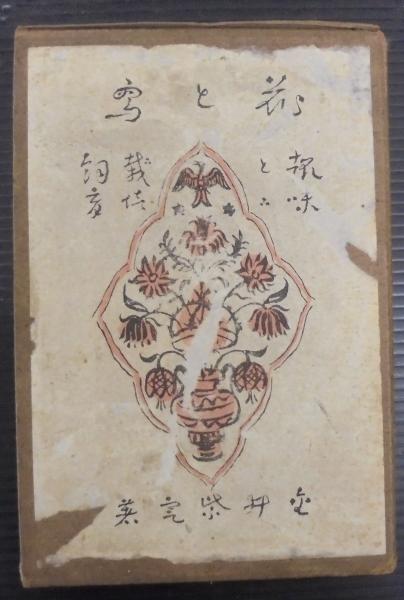 花と鳥
趣味
と
栽培
飼育
金井紫雲著